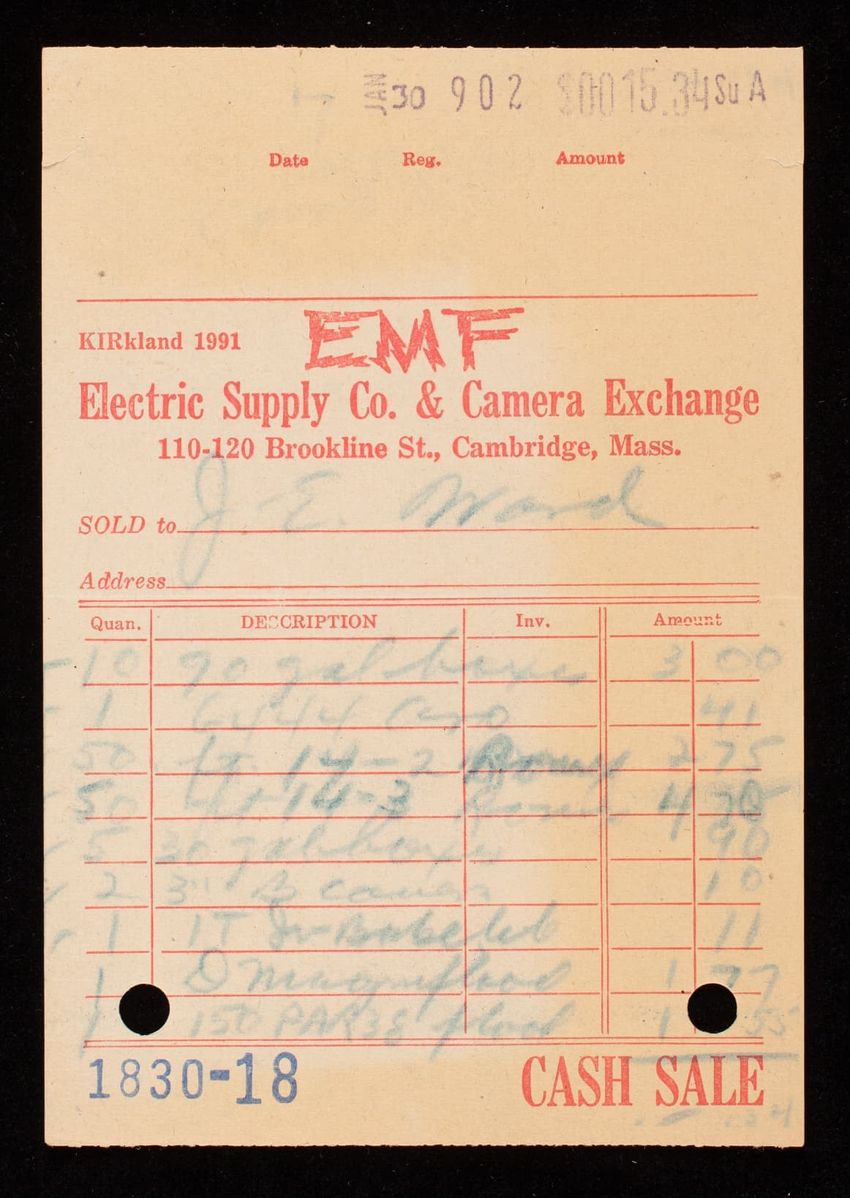 JAN 30 902 $0015.34 Su A
Date Reg. Amount
KIRkland 1991 EMF
Electric Supply Co. & Camera Exchange
110-120 Brookline St., Cambridge, Mass.
SOLD to J. E. Ward
Address
Quan. DESCRIPTION Inv. Amount
10 90 gal boxes 3 00
1 41
50 ft 14-2 Romex 2 75
50 ft 14-3 Romex 4
5 30 gal boxes 90
2 3" B cover 10
1 1T 11
1 D Magniflood 1 77
1 150 PAR38 flood 1 55
1830-18 CASH SALE